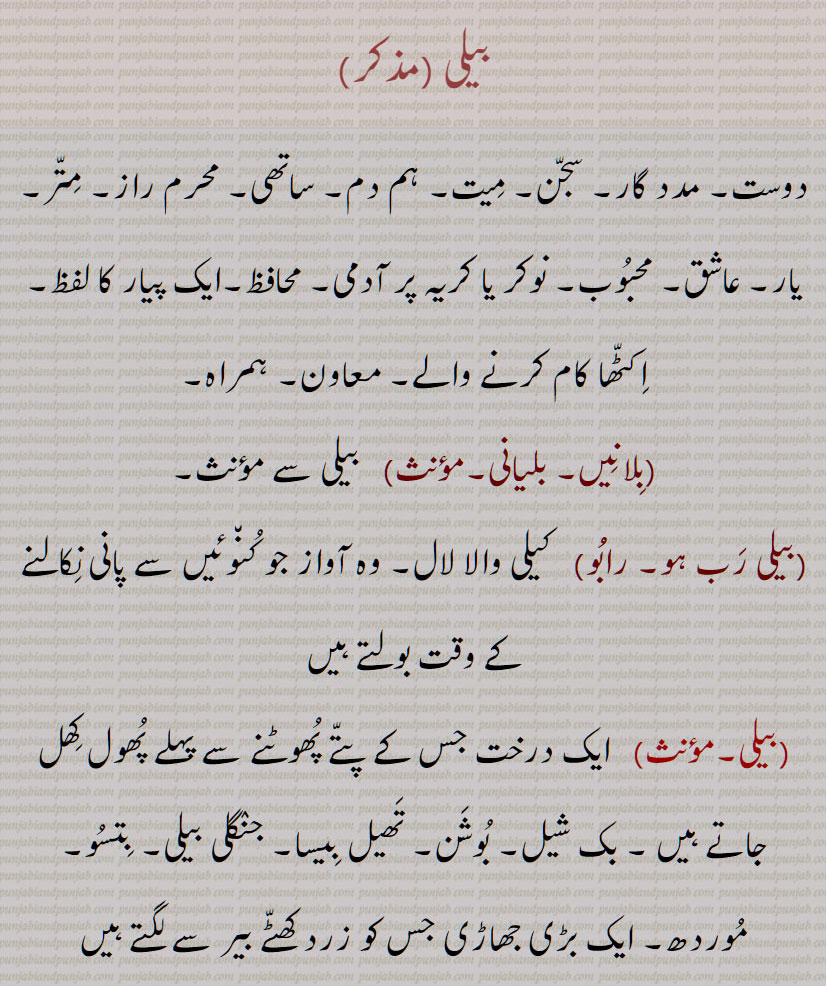 بیلی (مذکر)
دوست۔ مدد گار۔ سجّن۔ مِیت۔ ہم دم۔ ساتھی۔ محرم راز۔ مِتّر۔
یار۔ عاشق۔ محبُوب۔ نوکر یا کریہ پر آدمی۔ محافظ۔ایک پیار کا لفظ۔
اِکٹھّا کام کرنے والے۔ معاون۔ ہمراہ۔
(بِلانِیں۔ بلیانی۔مؤنث) بیلی سے مؤنث۔
(بیلی رَب ہو۔ رابُو) کیلی والا لال۔ وہ آواز جو کُنّوئیں سے پانی نِکالنے
کے وقت بولتے ہیں
(بیلی۔مؤنث) ایک درخت جس کے پتّے پُھوٹنے سے پہلے پُھول کِھل
جاتے ہیں ۔ بک شیل۔ بُوشَن۔ تَھیل بِیسا۔ جنگلی بیلی۔ بِتسُو۔
مُوردھ۔ ایک بڑی جھاڑی جس کو زرد کھٹّے بیر سے لگتے ہیں
punjabiandpunjab com